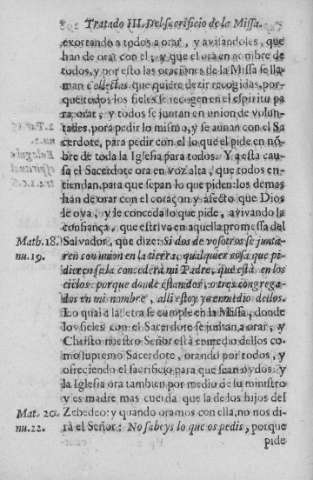 8 Tratado III. Del sacrificio de la Missa.
exortando a todos a orar, y auisandoles, que
han de orar con el, y que el ora en nombre de
todos, y por esto las oraciones de la Missa se lla-
man Collectas, que quiere dezir recogidas, por-
que todos los fieles se recogen en el espiritu pa
ra orar, y todos se juntan en vnion de volun-
tades, para pedir lo mismo, y se aunan con el Sa
cerdote, para pedir con el lo que el pide en nõ-
bre de toda la Iglesia para todos. Y a esta cau-
sa el Sacerdote ora en voz alta, que todos en-
tiendan, para que sepan lo que piden: los demas
han de orar con el coraçon y afecto que Dios
de oya, y le conceda lo que pide, auivando la
confiança, que estriva en aquella promessa del
Math. 18. Saluador, que dize: Si dos de vosotros se junta-
nu. 19. ren con vnion en la tierra, qualquier cosa que pi-
dieren se la concederá mi Padre, que està en los
cielos: porque donde estan dos, o tres congrega-
dos en mi nombre, alli estoy yo enmedio dellos.
Lo qual a la letra se cumple en la Missa, donde
los fieles con el Sacerdote se juntan, a orar, y
Christo nuestro Señor està enmedio dellos co-
mo supremo Sacerdote, orando por todos, y
ofreciendo el sacrificio para que sean oydos: y
la Iglesia ora tambien por medio de su ministro
y es madre mas cuerda que la de los hijos del
Mat. 20. Zebedeo: y quando oramos con ella, no nos di-
nu. 22. rà el Señor: No sabeys lo que os pedis, porque
pide